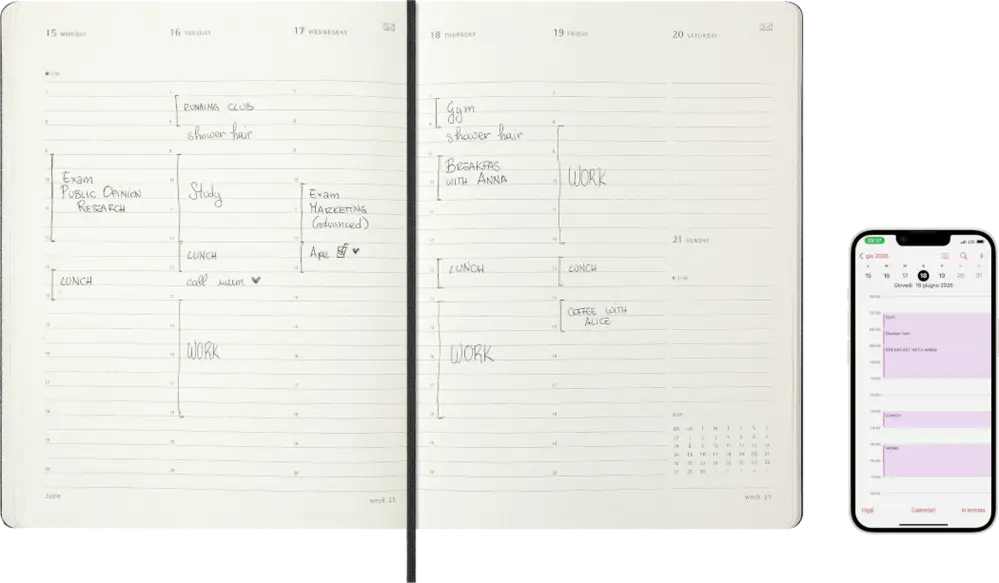 15 MONDAY
16 TUESDAY
17 WEDNESDAY
RUNNING CLUB
shower hair
Exam
PUBLIC OPINION
RESEARCH
Study
Exam
MARKETING
(advanced)
LUNCH
LUNCH
call mum
WORK
June
week 25
18 THURSDAY
19 FRIDAY
20 SATURDAY
Gym
shower hair
BREAKFAS
WITH ANNA
WORK
LUNCH
LUNCH
COFFEE WITH
ALICE
WORK
21 SUNDAY
week 25
giu 2026
15 16 17 18 19 20 21
Giovedì 18 giugno 2026
BREAKFAST WITH ANNA
LUNCH
WORK
Oggi
Calendari
In entrata